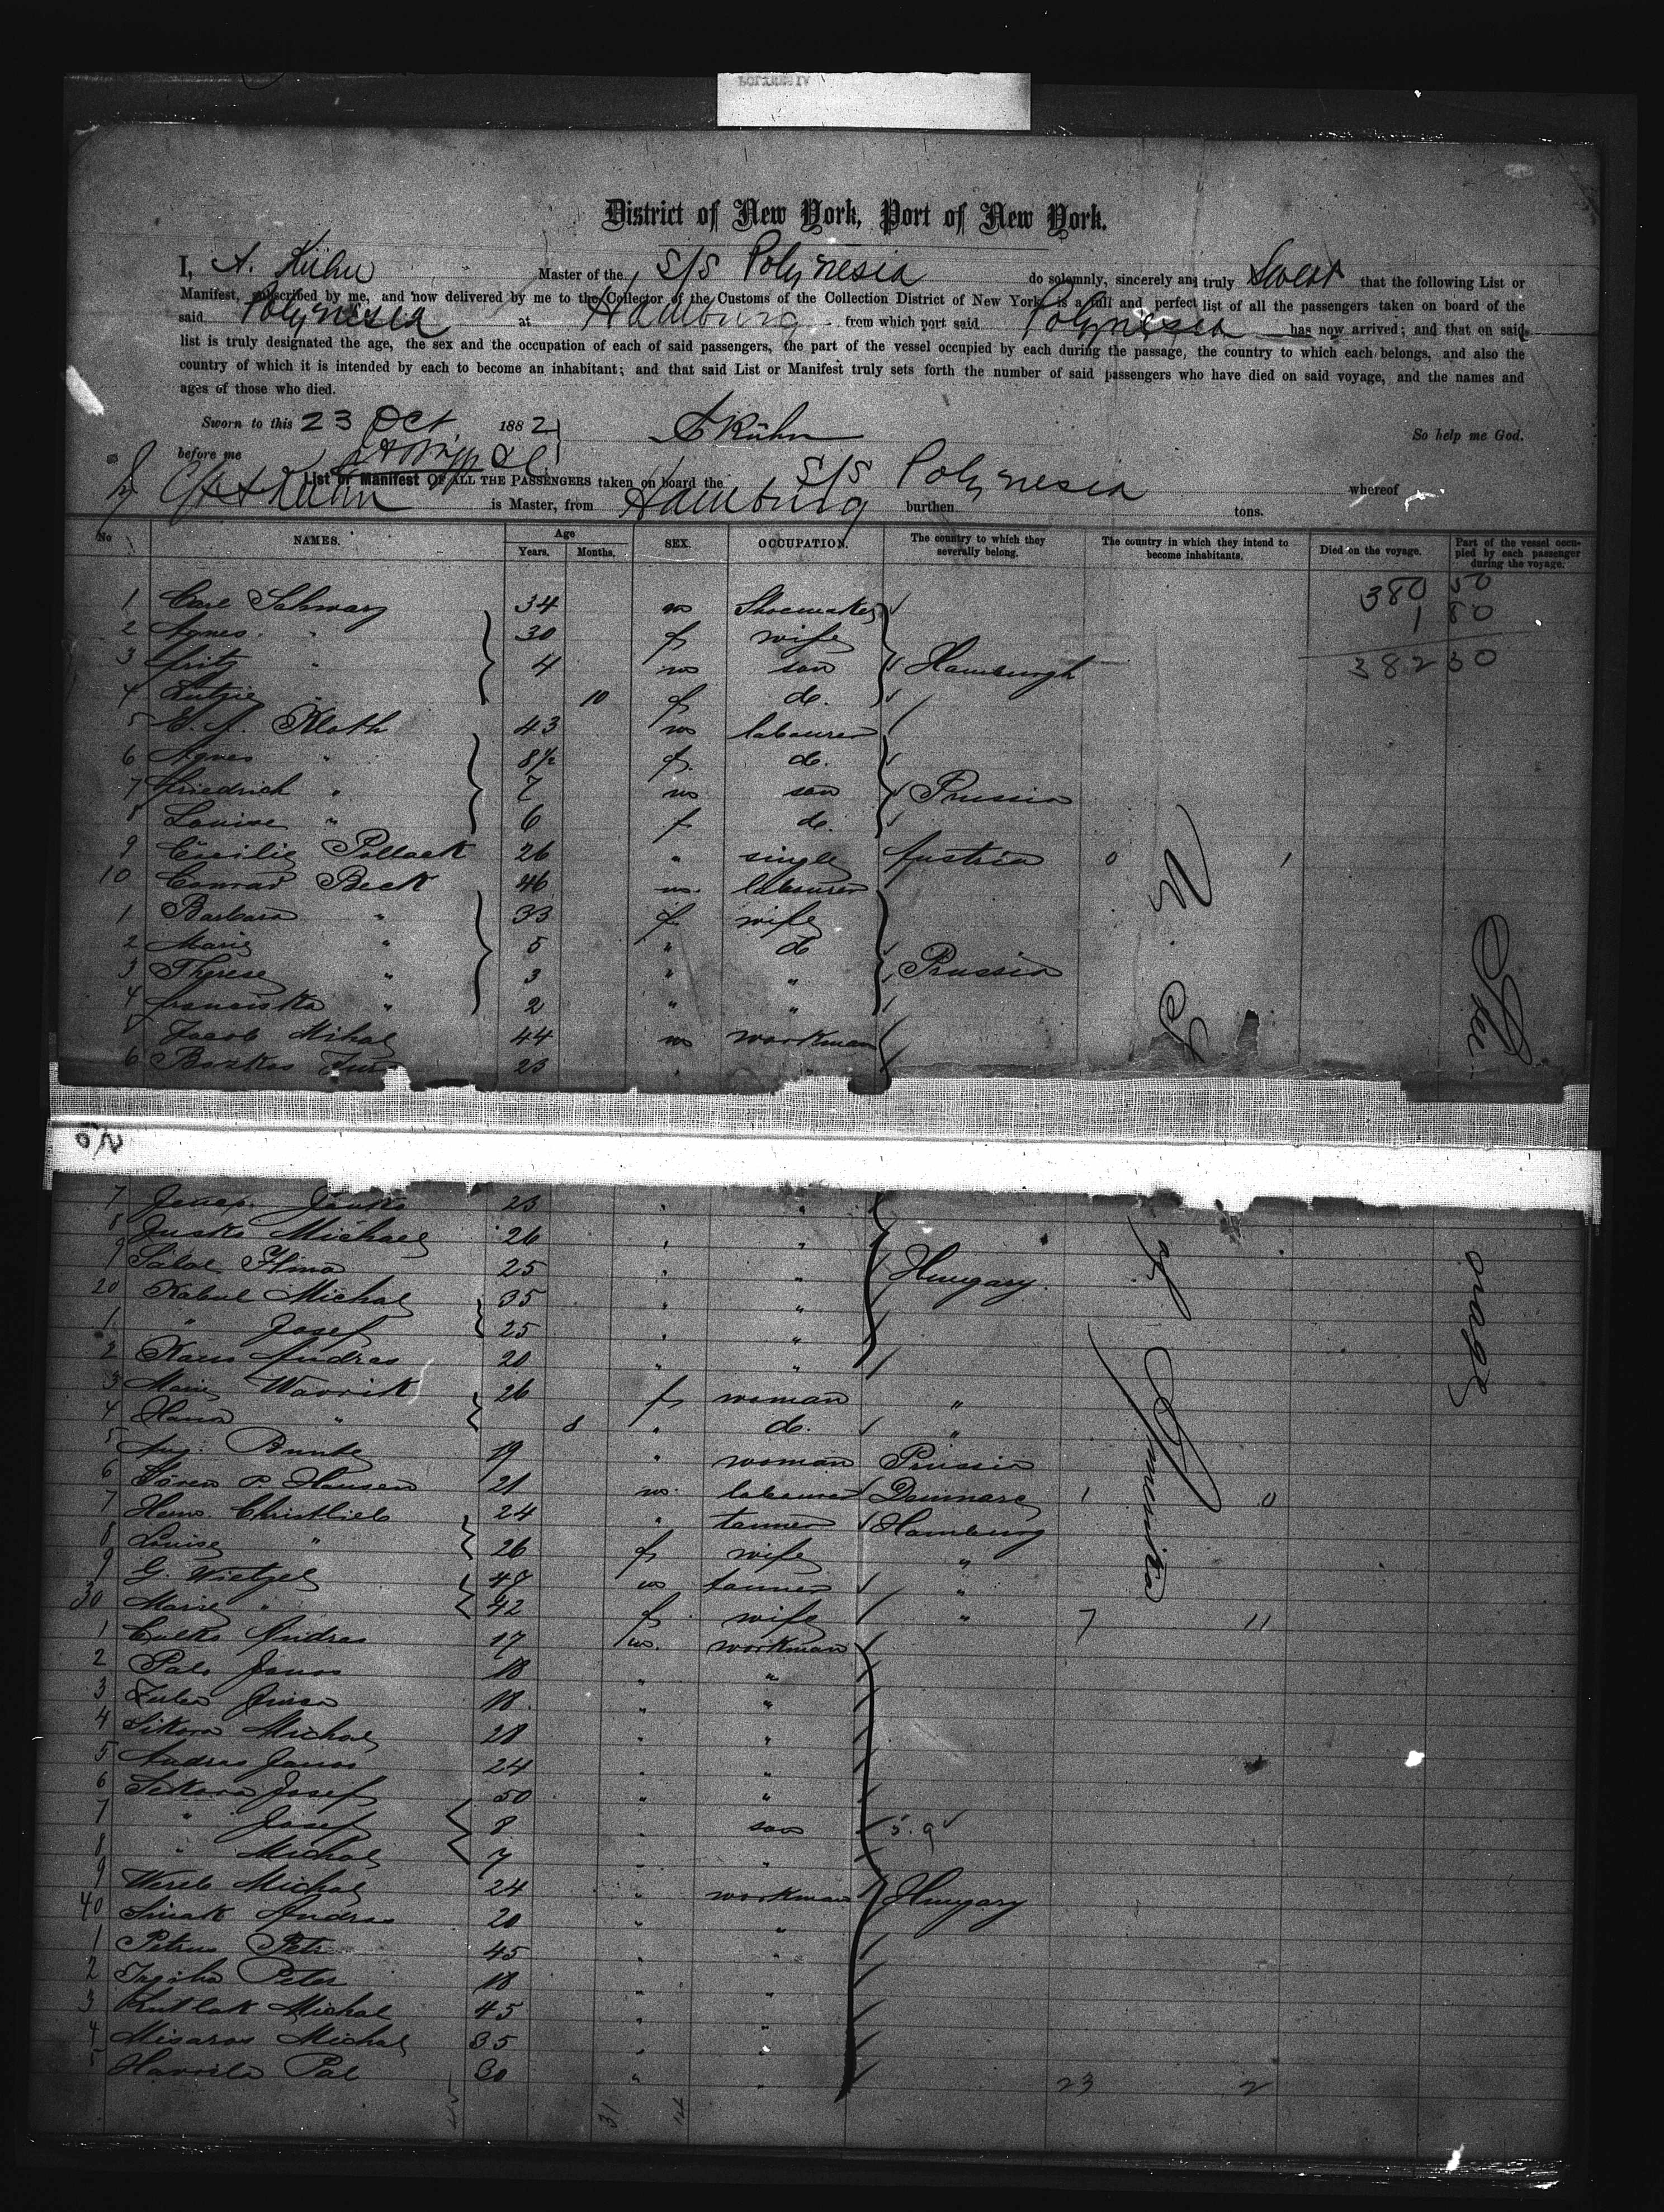 District of New York, Port of New York.
I, A. Kühn Master of the S/S Polynesia do solemnly, sincerely and truly Swear that the following List or
Manifest, subscribed by me, and now delivered by me to the Collector of the Customs of the Collection District of New York, is a full and perfect list of all the passengers taken on board of the
said Polynesia at Hamburg from which port said Polynesia has now arrived; and that on said
list is truly designated the age, the sex and the occupation of each of said passengers, the part of the vessel occupied by each during the passage, the country to which each belongs, and also the
country of which it is intended by each to become an inhabitant; and that said List or Manifest truly sets forth the number of said passengers who have died on said voyage, and the names and
ages of those who died.
Sworn to this 23 Oct 1882 A Kühn So help me God.
before me
List or Manifest OF ALL THE PASSENGERS taken on board the S/S Polynesia whereof
A Kuhn is Master, from Hamburg burthen tons.
No NAMES. Age Years. Months. SEX. OCCUPATION. The country to which they severally belong. The country in which they intend to become inhabitants. Died on the voyage. Part of the vessel occupied by each passenger during the voyage.
380 50
1 80
382 30
1 Carl Schwarz 34 m Shoemaker
2 Agnes " 30 f wife
3 Fritz " 4 m son Hamburgh
4 " 10 f do.
5 Kloth 43 m labourer
6 Agnes " 8½ f. do.
7 Friedrich " 7 m son Prussia
8 Louise " 6 f do.
9 Cäcilie Pollack 26 " single Austria 0 1
10 Conrad Beck 46 m. labourer
1 Barbara " 33 f wife
2 Marie " 5 " do
3 Therese " 3 " " Prussia
4 Franciska " 2 " "
5 Jacob Mihal 44 m workman
6 23
7 Janko 23 " "
8 Jusko Michael 26 " "
9 25 " " Hungary
20 Kabul Michal 35 " "
1 " Josef 25 " "
2 Andras 20 " "
3 Marie Wavrik 26 f woman "
4 Hana " 8 " do. "
5 Aug. Bunke 19 " woman Prussia
6 Sören P. Hansen 21 m. labourer Denmark 1 0
7 Hans. Christlieb 24 " tanner Hamburg
8 Louise " 26 f wife "
9 G. Wietzel 47 m tanner "
30 Marie " 42 f wife " 7 11
1 Andras 17 m. workman
2 Palo Janos 18 " "
3 18 " "
4 Sikora Michal 28 " "
5 Andras Janos 24 " "
6 Sikora Josef 50 " "
7 " Josef 8 " son
8 " Michal 7 " "
9 Michal 24 " workman Hungary
40 Andras 20 " "
1 Petrus Petr 45 " "
2 Peter 18 " "
3 Kutlak Michal 45 " "
4 Misaros Michal 35 " "
5 Havrila Pal 30 " " 23 2
U. S. of America
Steerage
31 14